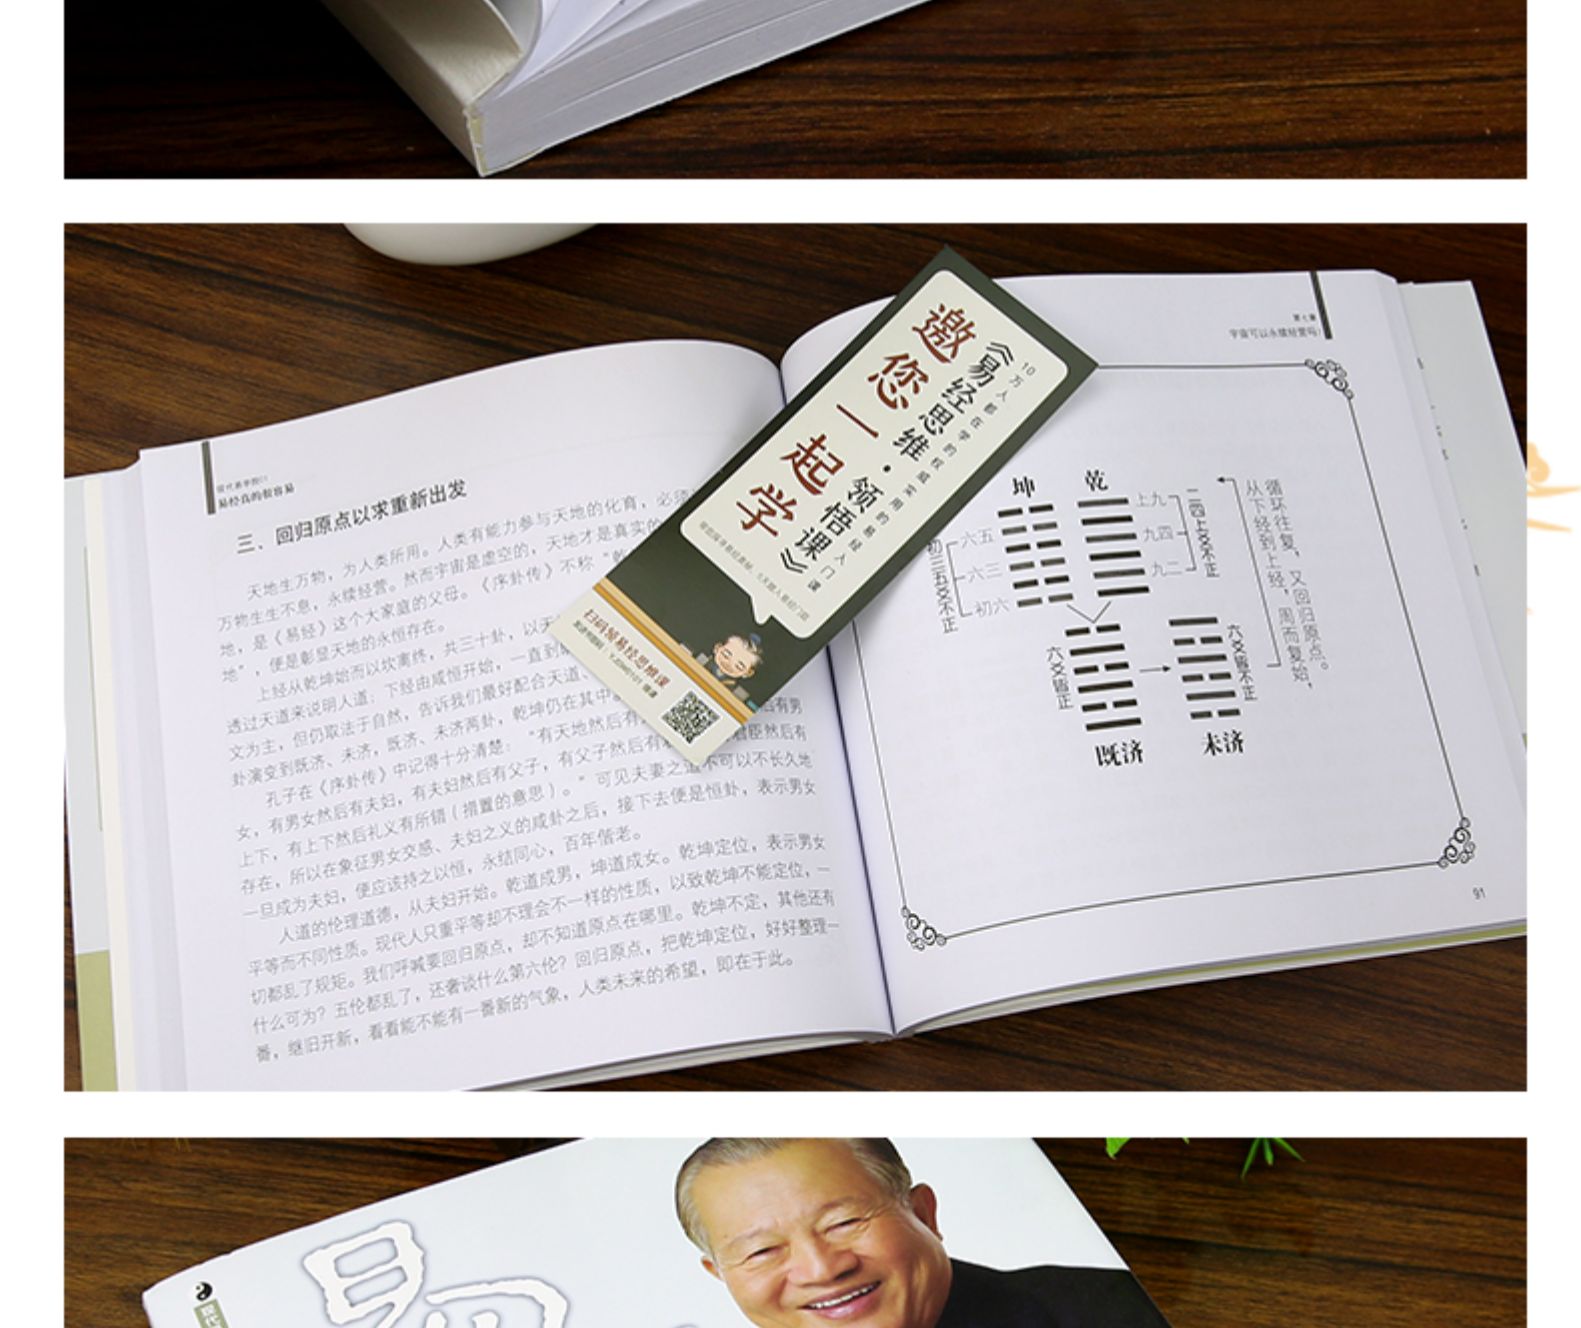 现代易学院01
易经真的很容易
三、回归原点以求重新出发
天地生万物，为人类所用。人类有能力参与天地的化育，必须
万物生生不息，永续经营。然而宇宙是虚空的，天地才是真实的
地，是《易经》这个大家庭的父母。《序卦传》不称“乾
地”，便是彰显天地的永恒存在。
上经从乾坤始而以坎离终，共三十卦，以天
透过天道来说明人道；下经由咸恒开始，一直到
文为主，但仍取法于自然，告诉我们最好配合天道、
卦演变到既济、未济，既济、未济两卦，乾坤仍在其中
孔子在《序卦传》中记得十分清楚：“有天地然后有 后有男
女，有男女然后有夫妇，有夫妇然后有父子，有父子然后有 君臣然后有
上下，有上下然后礼义有所错（措置的意思）。”可见夫妻之道不可以不长久地
存在，所以在象征男女交感、夫妇之义的咸卦之后，接下去便是恒卦，表示男女
一旦成为夫妇，便应该持之以恒，永结同心，百年偕老。
人道的伦理道德，从夫妇开始。乾道成男，坤道成女。乾坤定位，表示男女
平等而不同性质。现代人只重平等却不理会不一样的性质，以致乾坤不能定位，一
切都乱了规矩。我们呼喊要回归原点，却不知道原点在哪里。乾坤不定，其他还有
什么可为？五伦都乱了，还奢谈什么第六伦？回归原点，把乾坤定位，好好整理一
番，继旧开新，看看能不能有一番新的气象，人类未来的希望，即在于此。
10万人都在学的权威实用的易经入门课
《易经思维·领悟课》
邀您一起学
扫码领易经思维课
第七章
宇宙可以永续经营吗？
坤
乾
六五
六三
初六
初三五爻不正
上九
九四
九二
二四上爻不正
循环往复，又回归原点。
从下经到上经，周而复始，
六爻皆正
六爻皆不正
既济
未济
91
易
现代